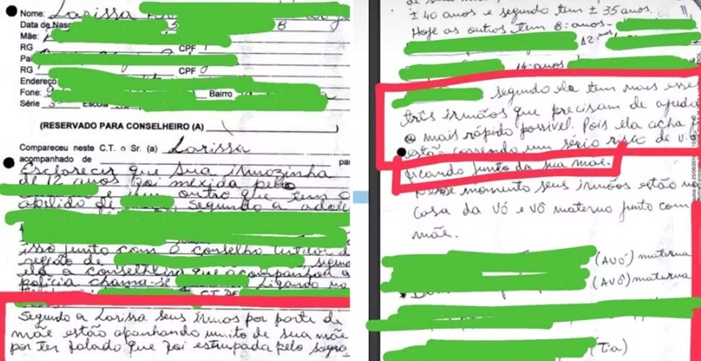 Nome: Larissa
Data de Nasc
Mãe:
RG CPF
Pai
RG CPF
Endereço
Fone: Bairro
Série Escola
(RESERVADO PARA CONSELHEIRO (A)
Compareceu neste C.T. o Sr. (a) Larissa
acompanhado de par
Esclarecer que sua irmãzinha
de 12 anos foi mexida pelo
outro que tem o
apelido de segundo a adol
isso junto com o conselho tutelar d
região de segun
ela a conselheira que acompanhou a
polícia chama-se Ligando no
C.T. DE
Segundo a Larissa seus irmãos por parte de
mãe estão apanhando muito de sua mãe
por ter falado que foi estrupada pelo sogro
± 40 anos e segundo tem ± 35 anos.
Hoje as outras tem 8 anos -
12
14 anos
segundo ela tem mais esse
três irmãos que precisam de ajuda
o mais rápido possível. Pois ela acha q
estão correndo um sério risco de v
ficando junto da sua mãe.
Nesse momento seus irmãos estão na
casa da vó e vô materno junto com
mãe.
(AVÓ) materna
(AVÔ) materna
(Tia)